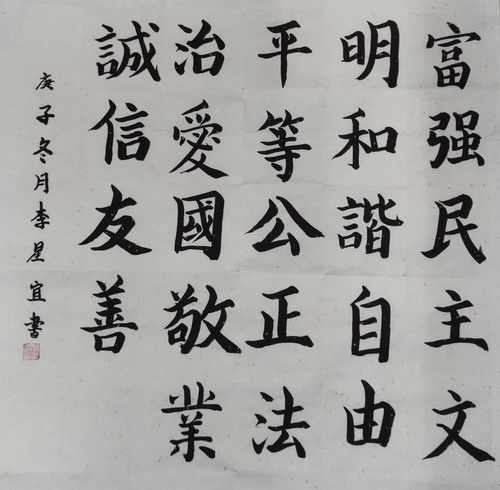 富强民主文
明和諧自由
平等公正法
治愛國敬業
誠信友善
庚子冬月李星宜書